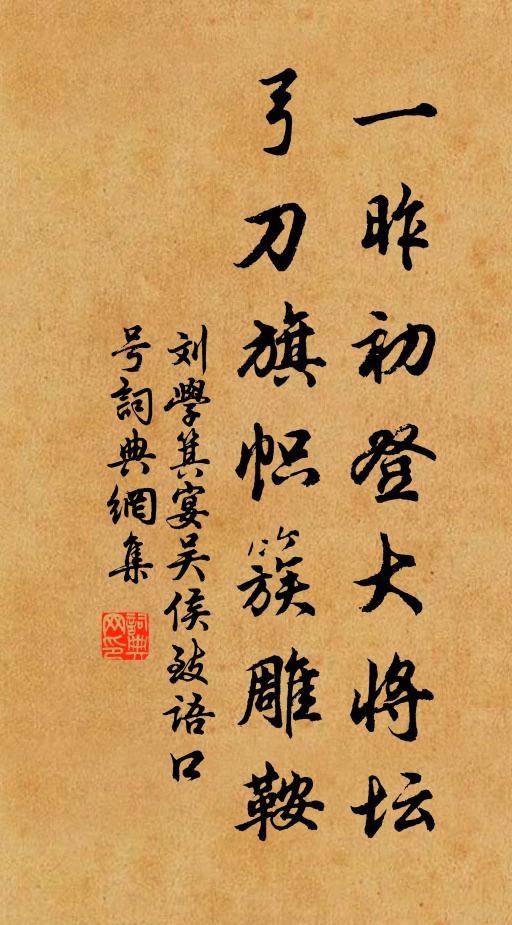 一昨初登大将坛
弓刀旗帜簇雕鞍
刘學箕宴吴侯致语口
号詞典網集
詞典网印